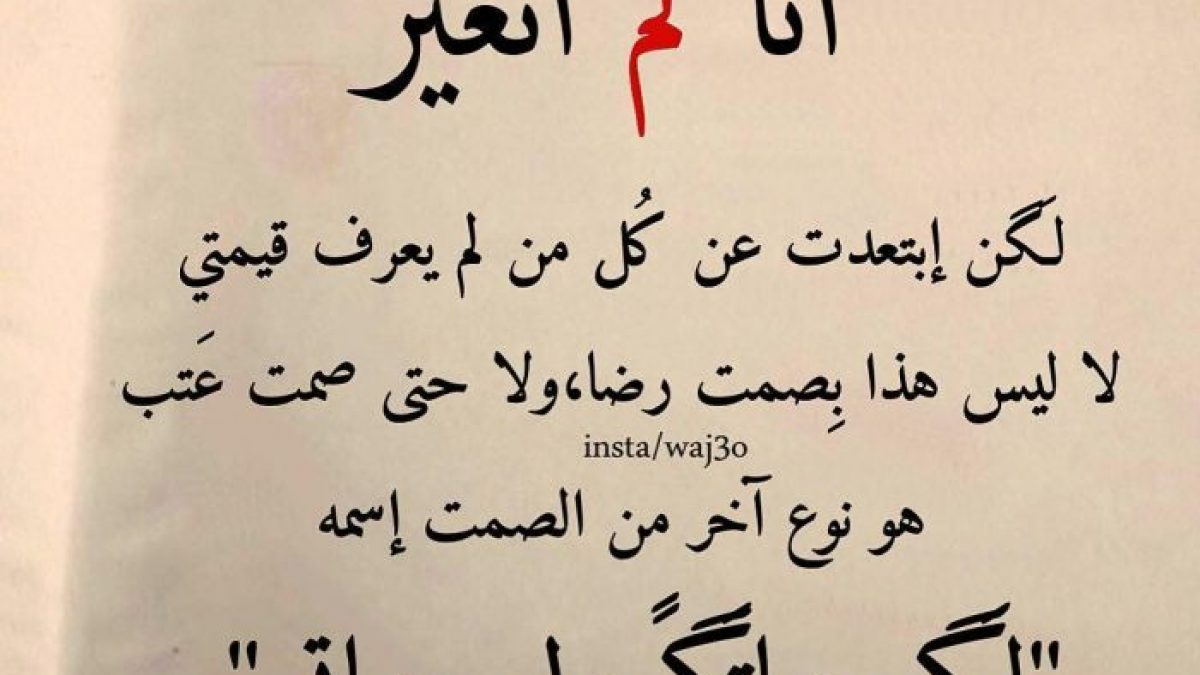 أنا لم أتغير
لَكن إبتعدت عن كُل من لم يعرف قيمتي
لا ليس هذا بِصمت رضا،ولا حتى صمت عَتب
insta/waj3o
هو نوع آخر من الصمت إسمه